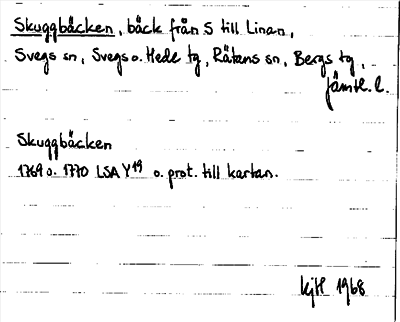 Skuggbäcken, bäck från S till Linan,
Svegs sn, Svegs o. Hede tg, Rätans sn, Bergs tg,
Jämtl. l.
Skuggbäcken
1769 o. 1770 LSA Y19 o. prot. till kartan.
kjH 1968